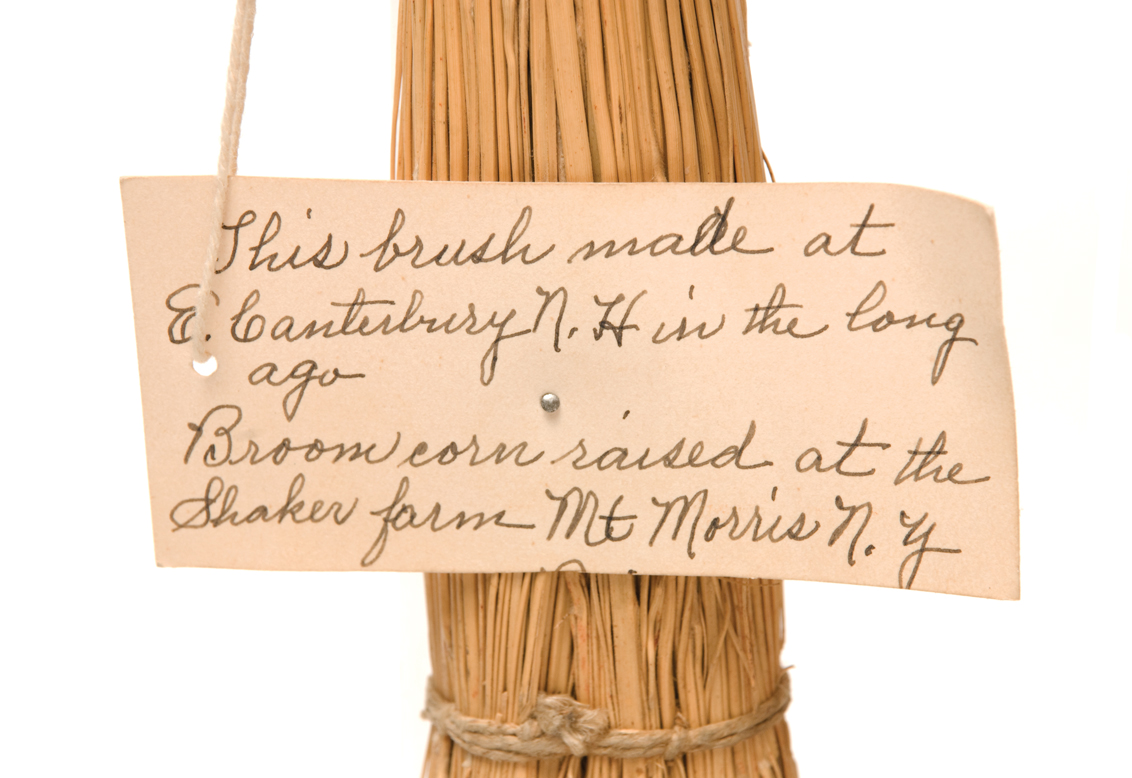 This brush made at
E. Canterbury N. H in the long
ago
Broom corn raised at the
Shaker farm Mt Morris N. Y